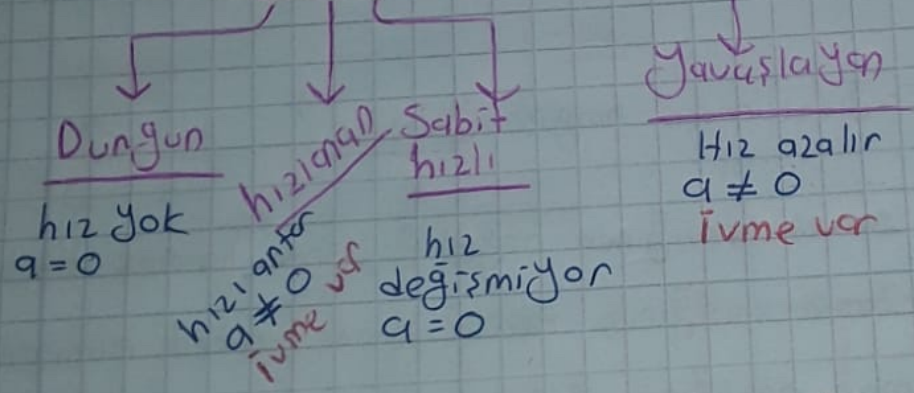 Durgun
hız yok
a = 0
hızlanan
hızı artar
a ≠ 0
ivme var
Sabit
hızlı
hız
değişmiyor
a = 0
Yavaşlayan
Hız azalır
a ≠ 0
İvme var